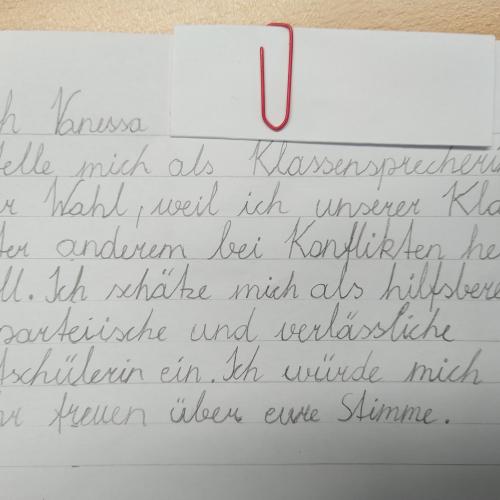 ch Vanessa
elle mich als Klassensprecherin
r Wahl, weil ich unserer Kla
ter anderem bei Konflikten he
ll. Ich schätze mich als hilfsbere
parteiische und verlässliche
tschülerin ein. Ich würde mich
hr freuen über eure Stimme.